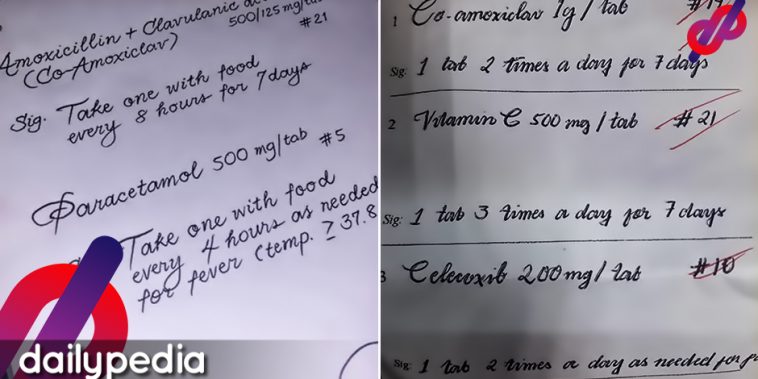 Amoxicillin + Clavulanic
(Co-Amoxiclav) 500/125 mg/
#21
Sig. Take one with food
every 8 hours for 7 days
Paracetamol 500 mg/tab #5
Take one with food
every 4 hours as needed
for fever (temp. ≥ 37.8
dailypedia
1 Co-amoxiclav 1g / tab
Sig: 1 tab 2 times a day for 7 days
2 Vitamin C 500 mg / tab #21
Sig: 1 tab 3 times a day for 7 days
3 Celecoxib 200 mg / tab #10
Sig: 1 tab 2 times a day as needed for